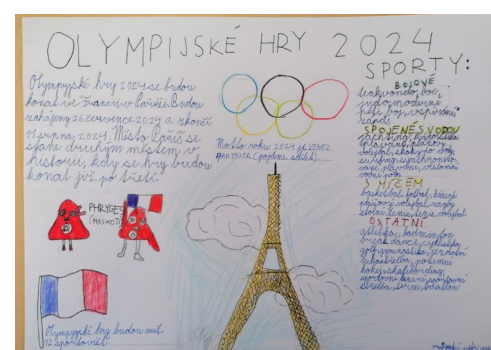 OLYMPIJSKÉ HRY 2024
Olympyjské hry 2024 se budou
konat ve Francii v Paříži. Budou
zahájeny 26. července 2024 a skončí
11. srpna 2024. Místo Paříž se
stane druhým městem v
historii, kdy se hry budou
konat již po třetí.
PHRYGES
(MASKOTI)
Olympyjské hry budou mít
Motto roku 2024 je VENEZ
PARTAGER (pojďme sdílet).
SPORTY:
BOJOVÉ
taekvondo, box,
judo, moderní
pěti boj, vzpírání
zápas
SPOJENÉ S VODOU
jachting, kanoistika
plavání, plážový
volejbal, skoky do vody,
surfing, synchronizo-
vané plavání, veslování
vodní pólo
S MÍČEM
basketbal, fotbal, házená
plážový volejbal, ragby
stolní tenis, tenis, volejbal
OSTATNÍ
atletika, badminton
break dance, cyklistika
golf, gymnastika, jezdectví
lukostřelba, pozemní
hokej, skateboarding,
sportovní lezení, sportovní
střelba, šerm, triatlon